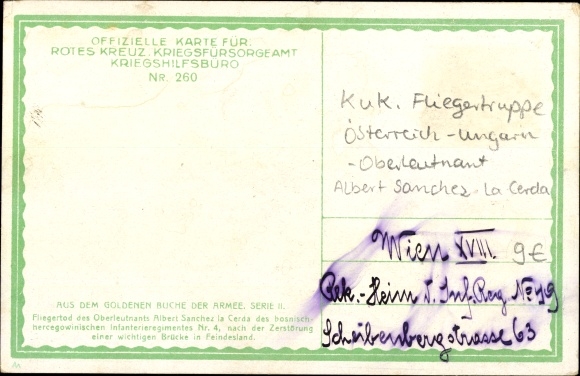 OFFIZIELLE KARTE FÜR:
ROTES KREUZ, KRIEGSFÜRSORGEAMT
KRIEGSHILFSBÜRO
NR. 260
KuK. Fliegertruppe
Österreich-Ungarn
-Oberleutnant
Albert Sanchez La Cerda
Wien XVIII. 9€
Rek.-Heim d. Inf. Reg. No 49
Scheibenbergstrasse 63
AUS DEM GOLDENEN BUCHE DER ARMEE, SERIE II.
Fliegertod des Oberleutnants Albert Sanchez la Cerda des bosnisch-
hercegowinischen Infanterieregimentes Nr. 4, nach der Zerstörung
einer wichtigen Brücke in Feindesland.